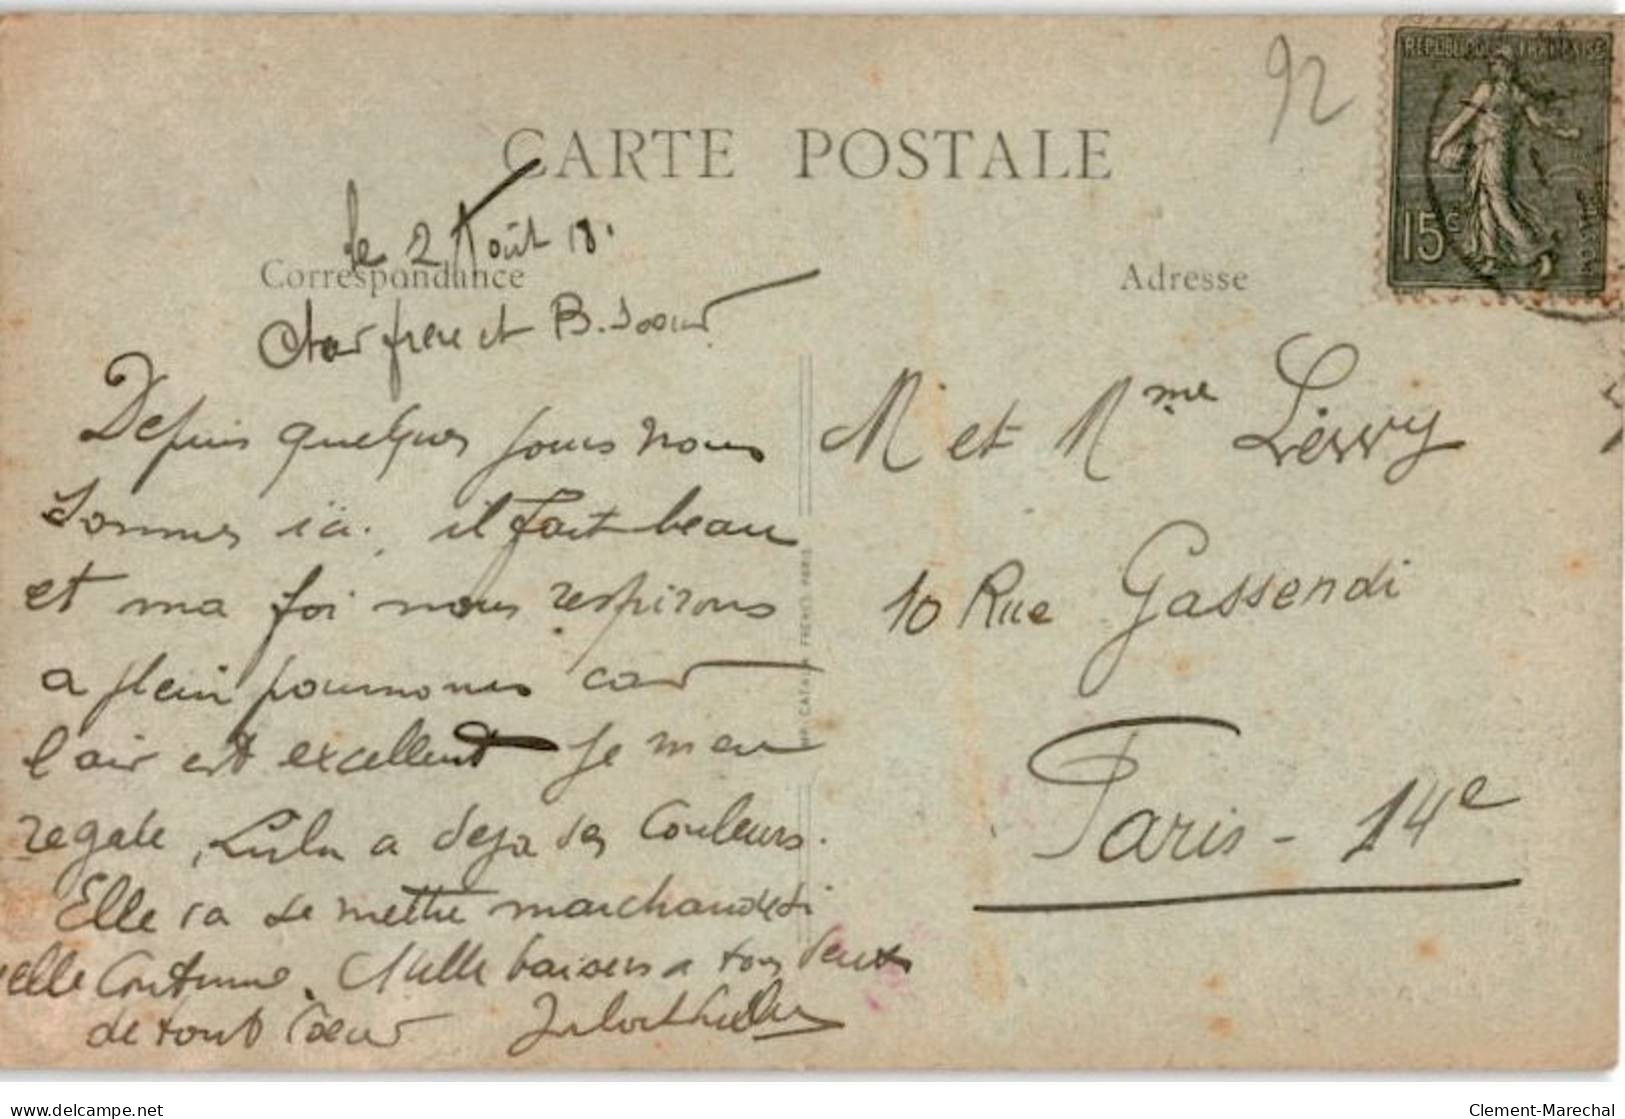 92
REPUBLIQUE FRANÇAISE
15c
CARTE POSTALE
le 2 Août 18.
Correspondance
Adresse
Cher frere et B. Soeur
Depuis quelques jours nous
sommes ici, il fait beau
et ma foi nous respirons
a plein poumons car
l'air est excellent Je m'en
regale, Lulu a deja des Couleurs.
Elle va se mettre marchande si
elle Continue. Mille baisers a tous deux
de tout Coeur
M et Mme Lévvy
10 Rue Gassendi
Paris - 14e
IMP. CATALA FRERES PARIS
www.delcampe.net
Clement-Marechal